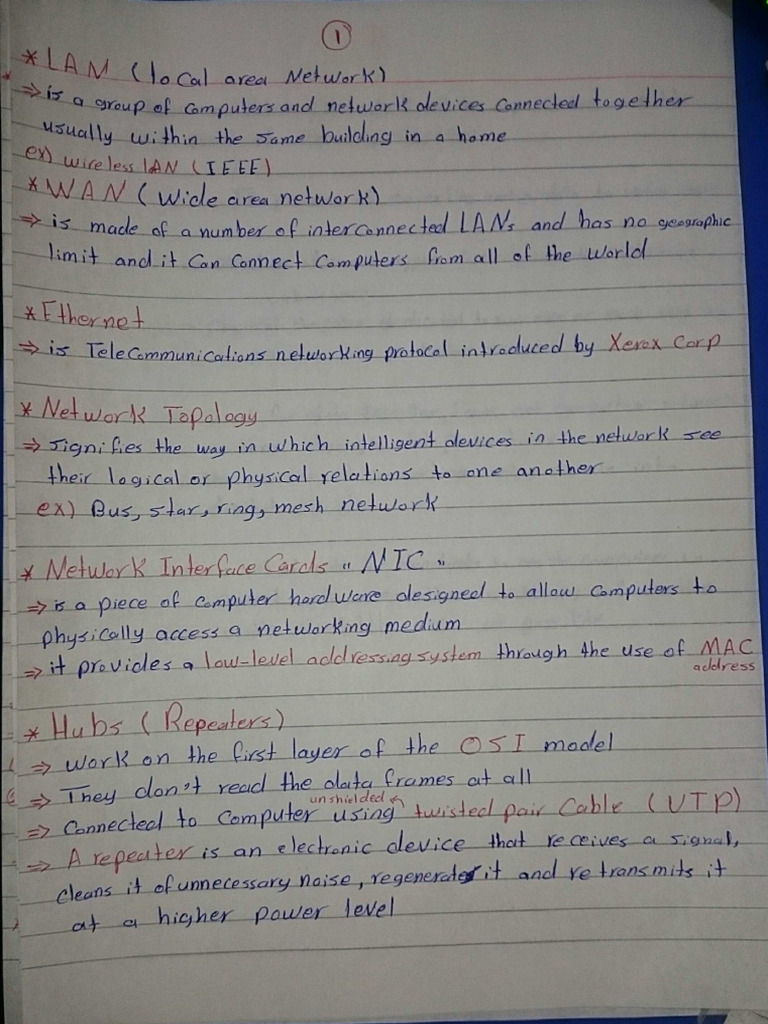 1
* LAN (local area Network)
⇒ is a group of computers and network devices connected together
usually within the same building in a home
ex) wireless LAN (IEEE)
* WAN (Wide area network)
⇒ is made of a number of interconnected LANs and has no geographic
limit and it can connect computers from all of the world
* Ethernet
⇒ is Telecommunications networking protocol introduced by Xerox Corp
* Network Topology
⇒ signifies the way in which intelligent devices in the network see
their logical or physical relations to one another
ex) Bus, star, ring, mesh network
* Network Interface Cards "NIC"
⇒ is a piece of computer hardware designed to allow computers to
physically access a networking medium
⇒ it provides a low-level addressing system through the use of MAC
address
* Hubs (Repeaters)
⇒ work on the first layer of the OSI model
⇒ They don't read the data frames at all
unshielded
⇒ Connected to computer using twisted pair Cable (UTP)
⇒ A repeater is an electronic device that receives a signal,
cleans it of unnecessary noise, regenerates it and retransmits it
at a higher power level